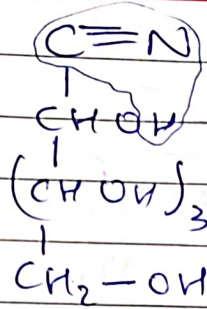 C≡N
CH OH
(CH OH)3
CH2 — OH